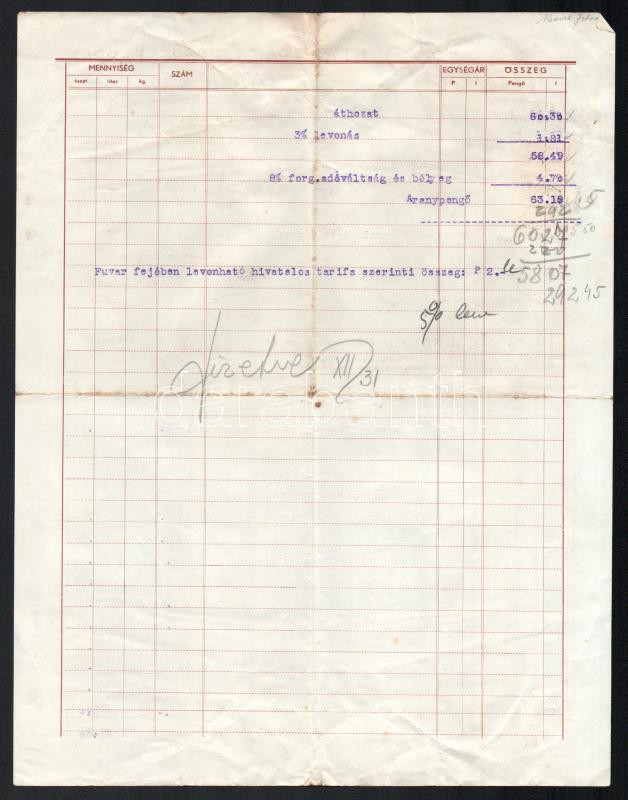 MENNYISÉG SZÁM EGYSÉGÁR ÖSSZEG
tucat liter kg. P f Pengő f
áthozat 60.30
3% levonás 1.81
58.49
8% forg.adóváltság és bélyeg 4.70
Aranypengő 63.19
292 45
6027
5807
292 45
Fuvar fejében levonható hivatalos tarifa szerinti összeg: P 2.
5%
fizetve XII/31
darabanth